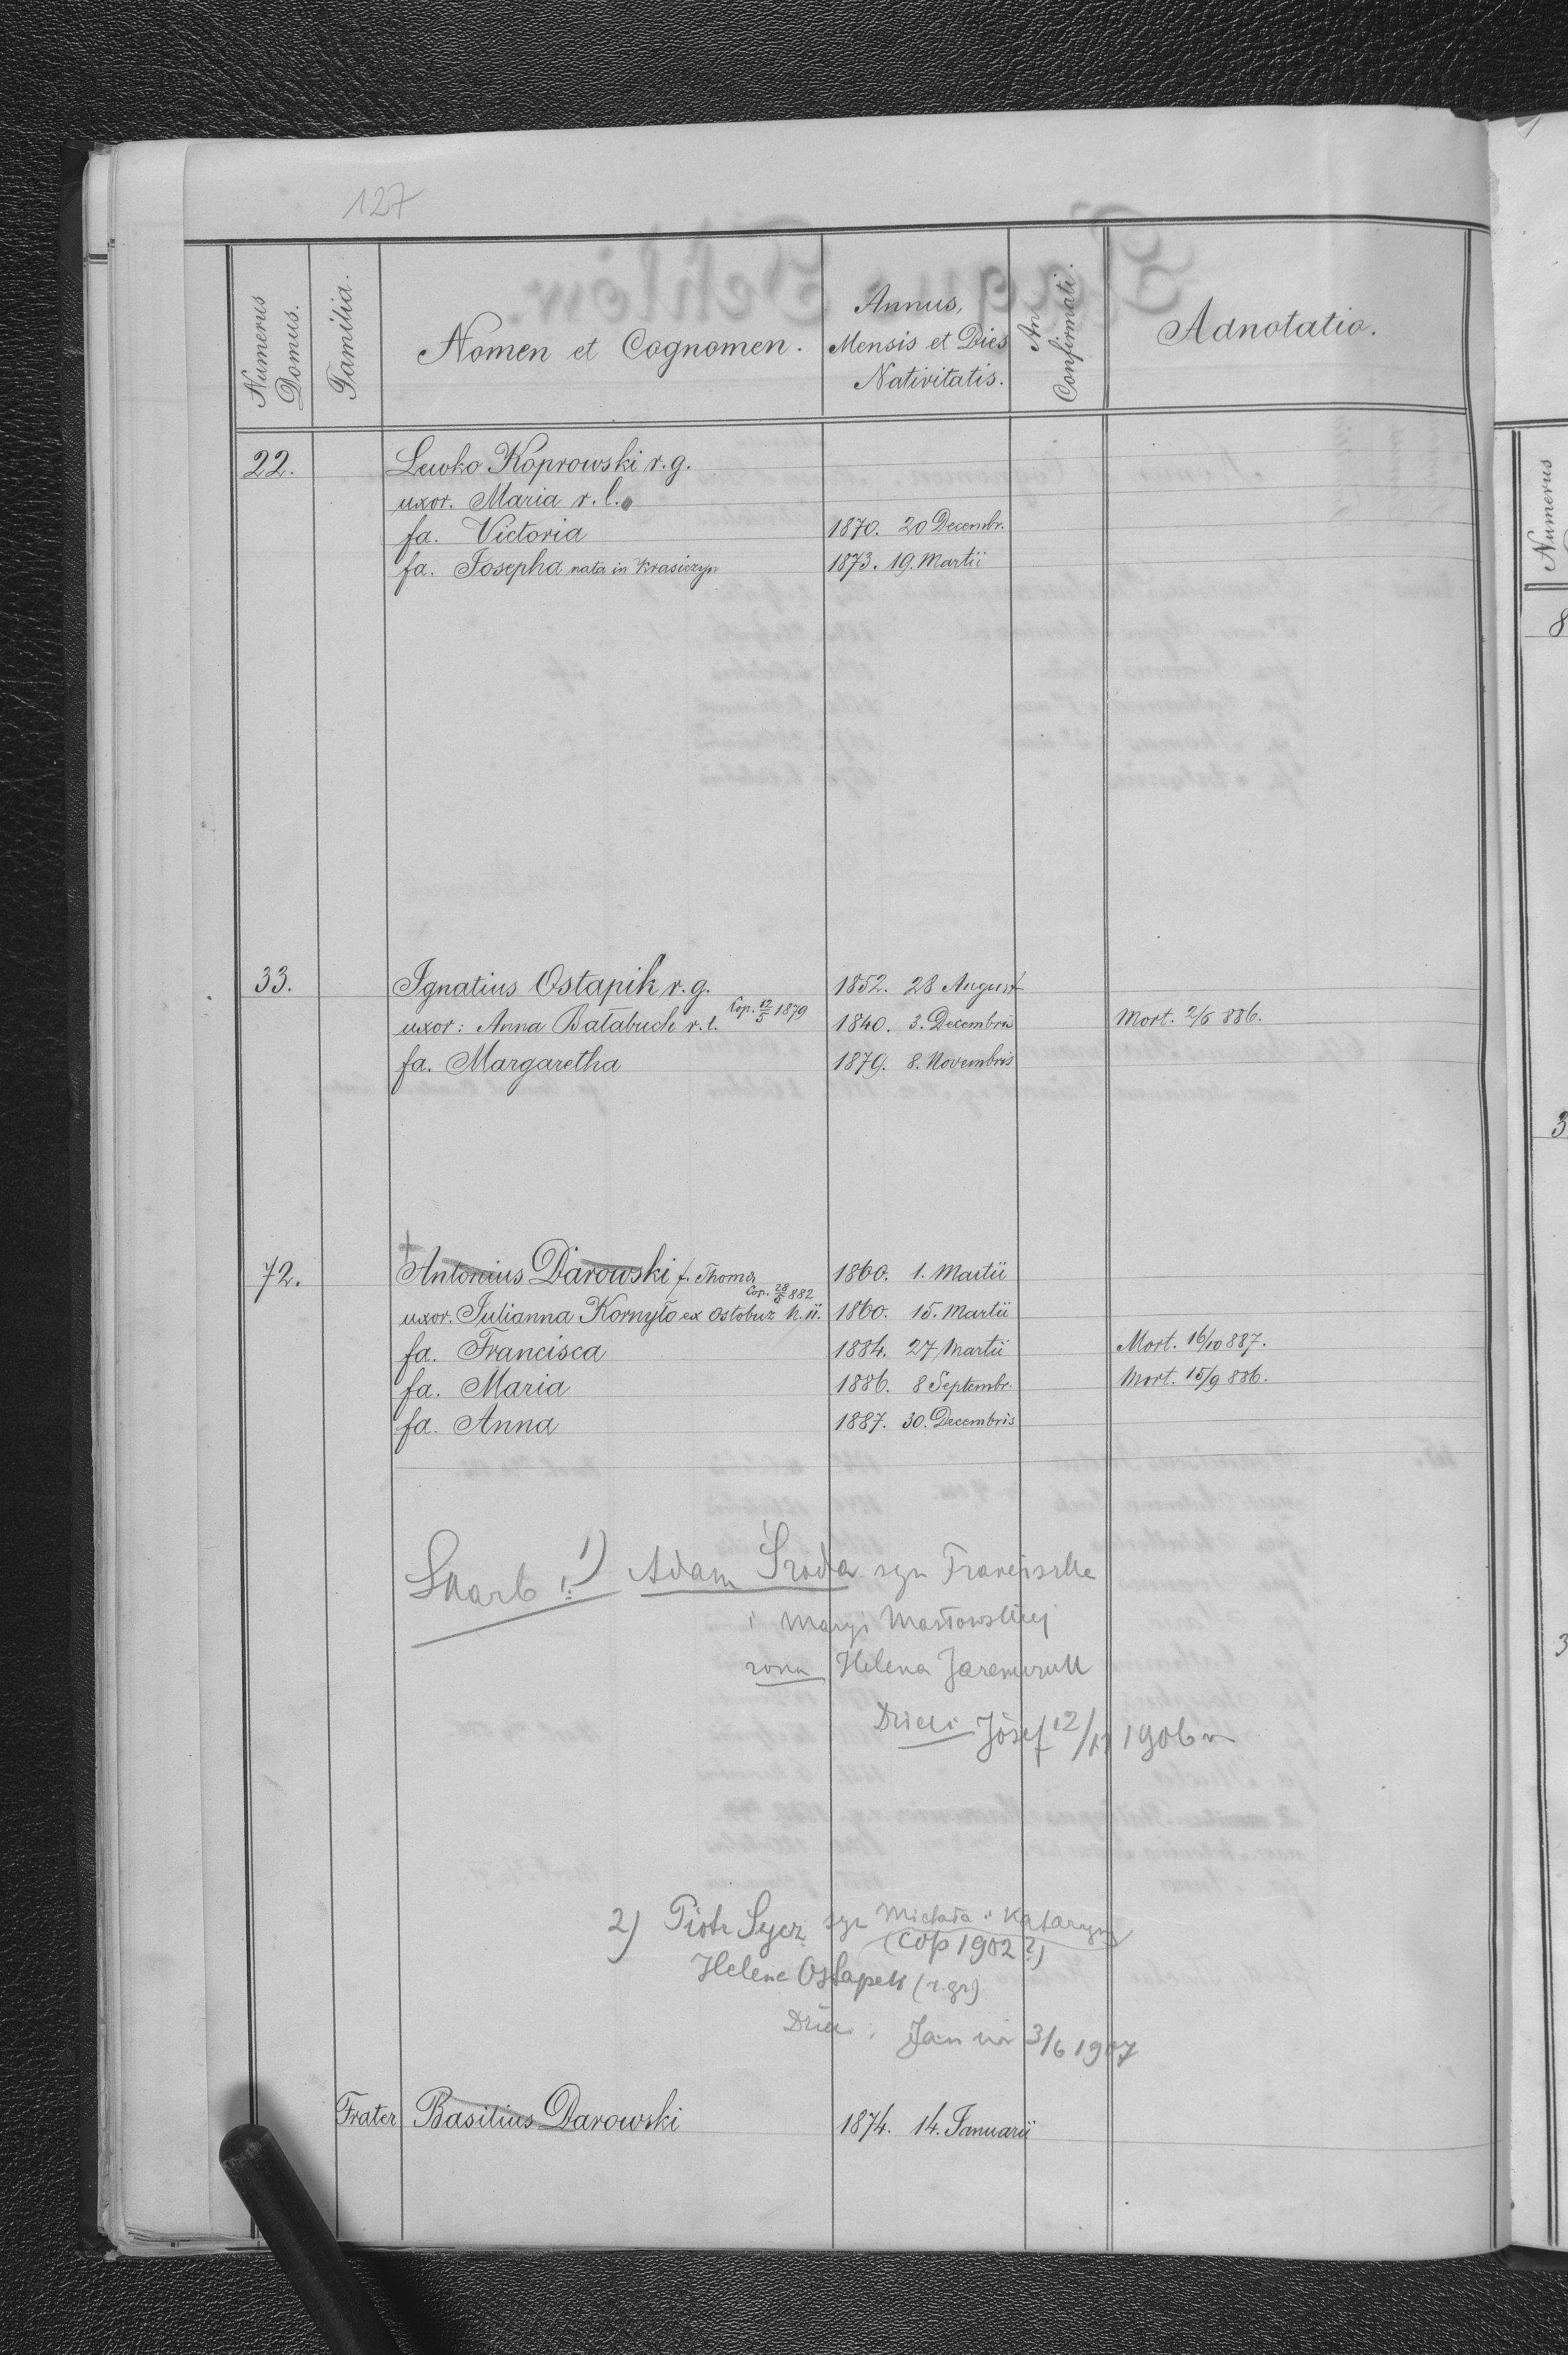 127
Numerus Domus.
Familia.
Nomen et Cognomen.
Annus,
Mensis et Dies
Nativitatis.
An Confirmati.
Adnotatio.
22. Lewko Koprowski r. g.
uxor. Maria r. l.
fa. Victoria 1870. 20 Decembr.
fa. Josepha nata in Krasiczyn 1873. 19. Martii
33. Ignatius Ostapik r. g. 1852. 28 August
uxor: Anna Bałabuch r. l. Cop. 12/5 1879 1840. 3. Decembris Mort. 2/6 886.
fa. Margaretha 1879. 8. Novembris
72. Antonius Darowski f. Thomæ 1860. 1. Martii
Cop. 28/5 882
uxor. Julianna Kornyło ex Ostobuz 1860. 15. Martii
fa. Francisca 1884. 27 Martii Mort. 16/10 887.
fa. Maria 1886. 8 Septembr. Mort. 15/9 886.
fa. Anna 1887. 30. Decembris
Skarb 1) Adam Środa syn Franciszka
i Maryi Masłowskiej
żona Helena
Dzieci Józef 12/11 1906
2) Piotr Sycz syn Michała i Katarzyny
(cop 1902?)
Helena Ostapek (r. gr)
Dzieci: Jan ur 3/6 1907
Frater Basilius Darowski 1874. 14. Januarii
Numerus
8
3
3